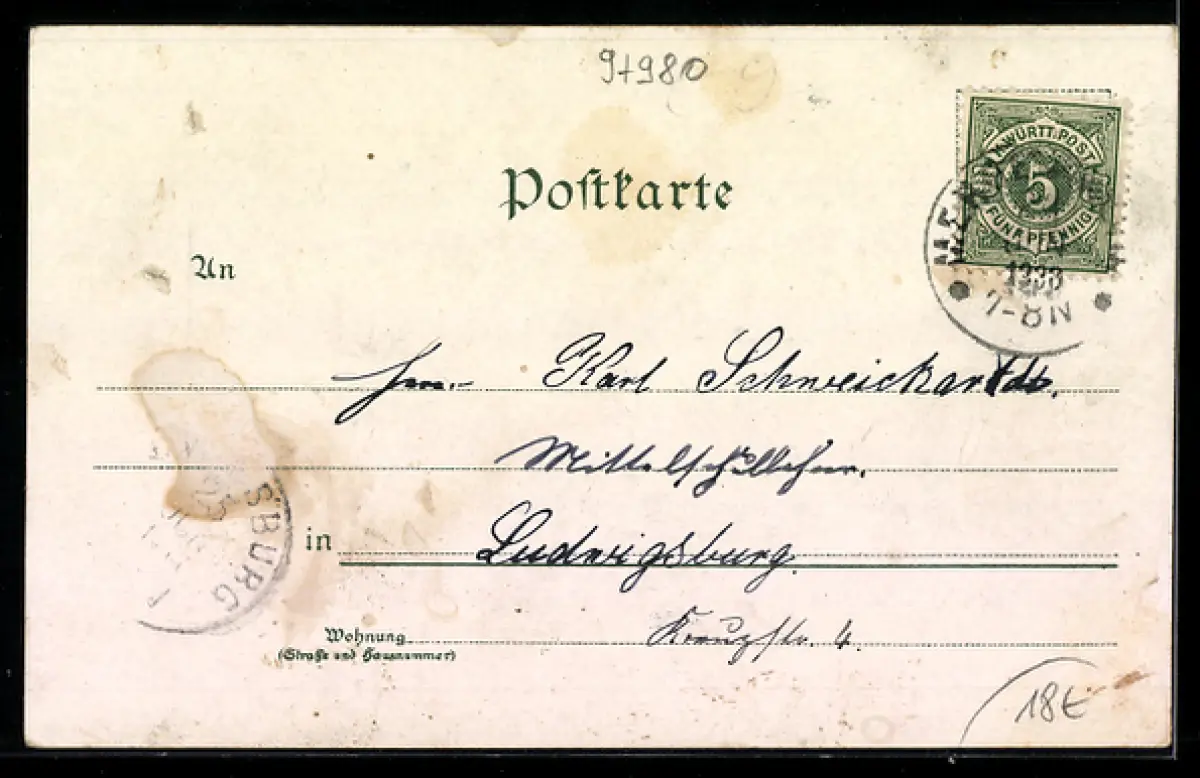 97980
K. WÜRTT. POST
5
FÜNF PFENNIG
Postkarte
An
7-8N
Herrn Karl Schweickardt.
Mittelschüllehrer.
in Ludwigsburg
SBURG
Wohnung Kreuzstr. 4.
(Straße und Hausnummer)
18€